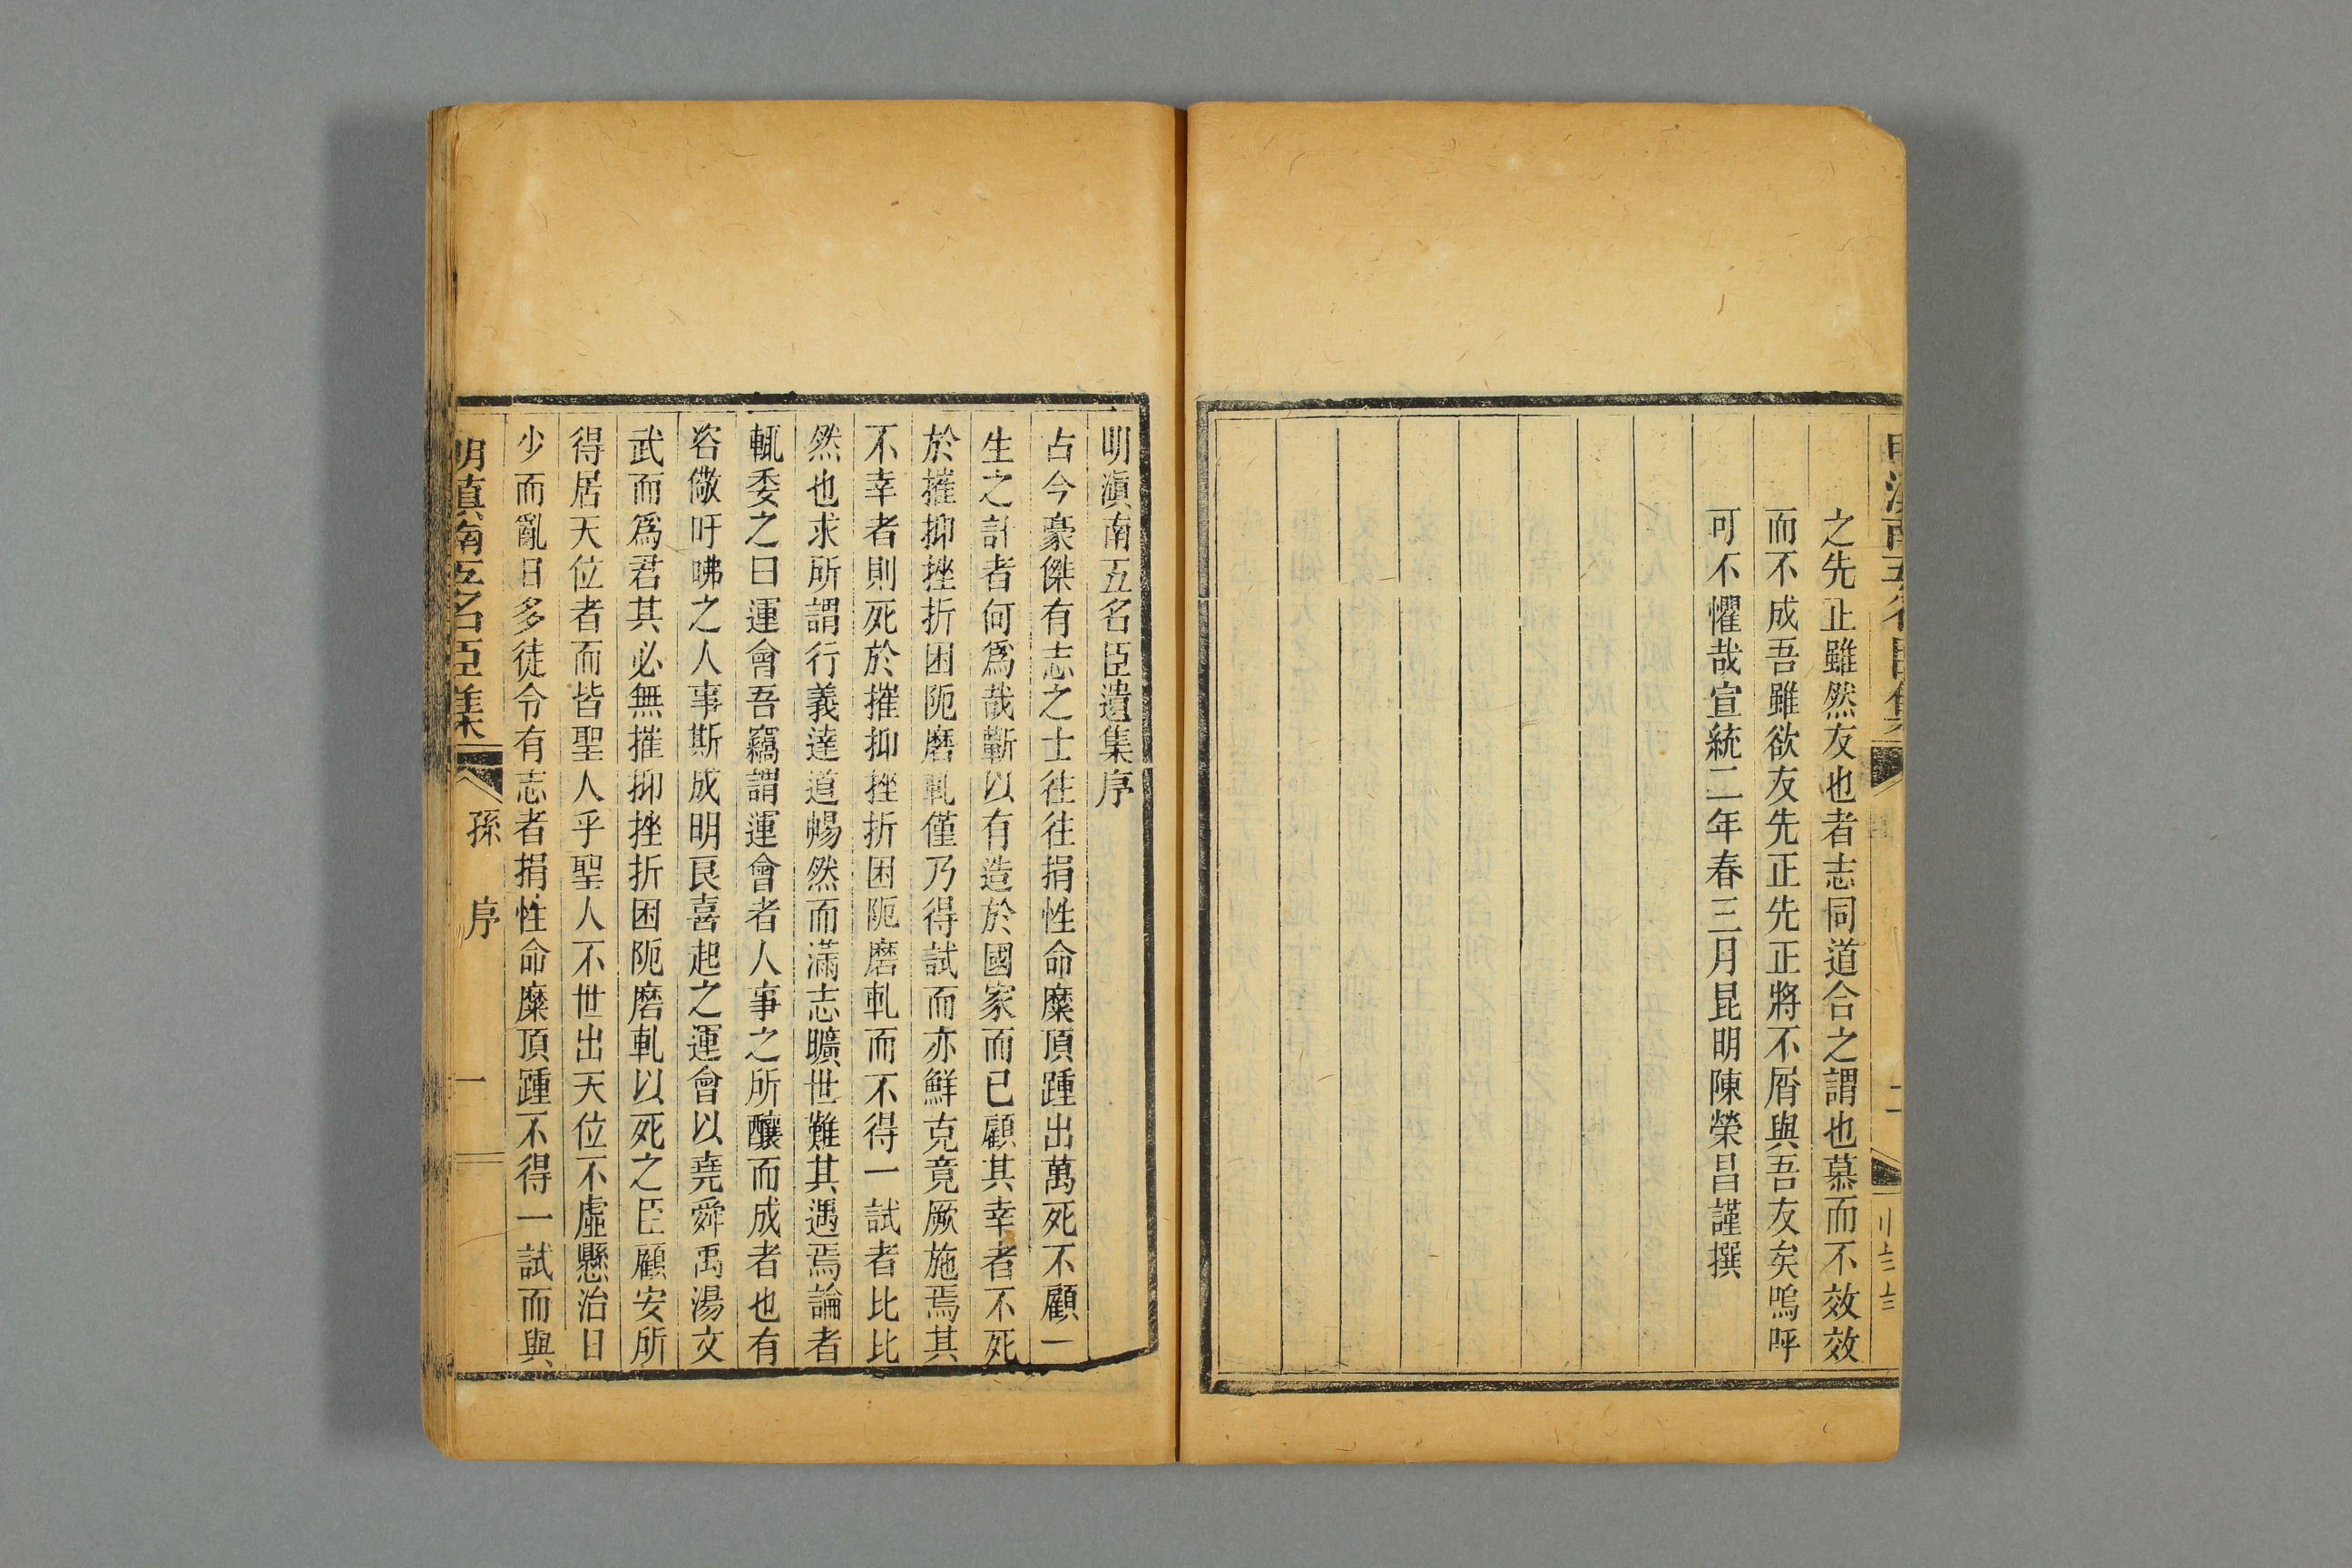 之先正雖然友也者志同道合之謂也慕而不效效
而不成吾雖欲友先正先正將不屑與吾友矣嗚呼
可不懼哉宣統二年春三月昆明陳榮昌謹撰
二
明滇南五名臣遺集序
古今豪傑有志之士往往捐性命糜頂踵出萬死不顧一
生之計者何爲哉蘄以有造於國家而已顧其幸者不死
於摧抑挫折困阨磨軋僅乃得試而亦鮮克竟厥施焉其
不幸者則死於摧抑挫折困阨磨軋而不得一試者比比
然也求所謂行義達道暢然而滿志曠世難其遇焉論者
輒委之曰運會吾竊謂運會者人事之所釀而成者也有
咨儆吁咈之人事斯成明良喜起之運會以堯舜禹湯文
武而爲君其必無摧抑挫折困阨磨軋以死之臣顧安所
得居天位者而皆聖人乎聖人不世出天位不虛懸治日
少而亂日多徒令有志者捐性命糜頂踵不得一試而與
明滇南五名臣集
孫
序
一